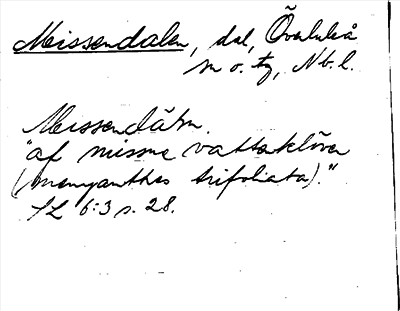 Meissendalen, dal, Överluleå
sn o. tg, Nb. l.
Meissendäʹln.
"af missne vattenklöver
(menyanthes trifoliata)."
SL 6:3 s. 28.